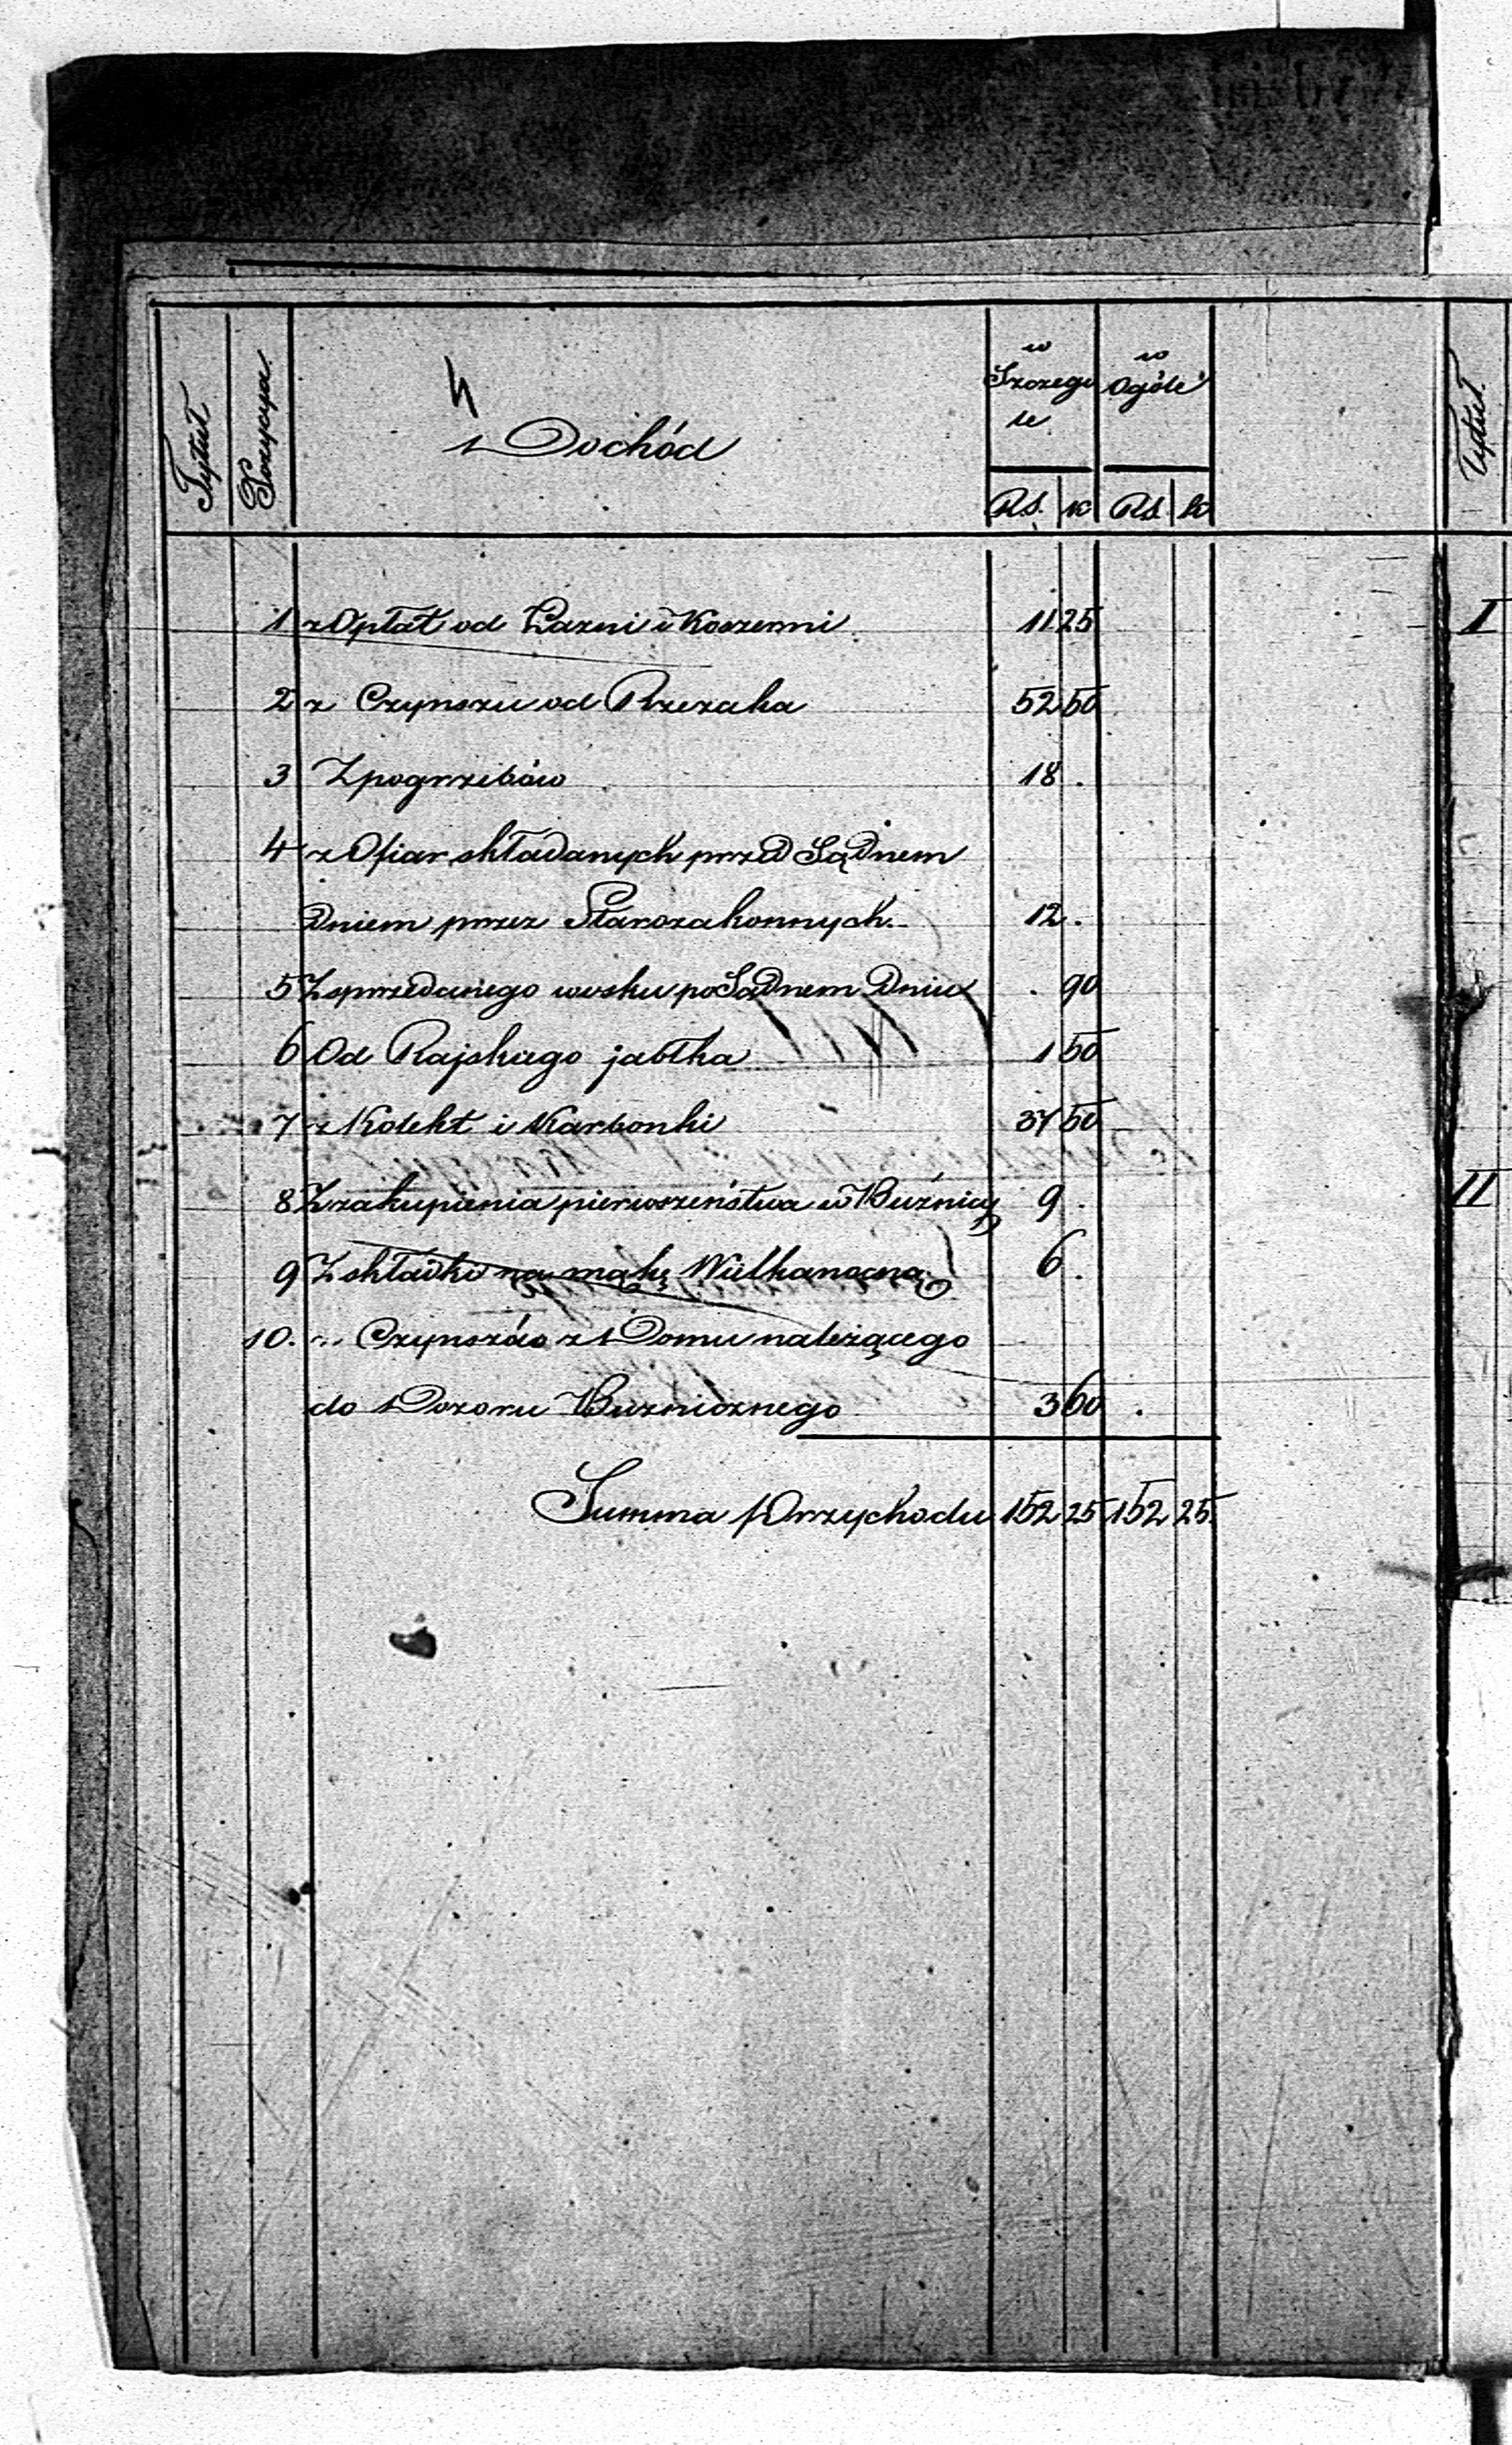 Tytuł
Pozycya
Dochód
w Szczegó
le
w Ogóle
Rs. k Rs. k
Tytuł
1 z Opłat od Łazni i Koszerni 11 25
2 z Czynszu od Rzezaka 52 50
3 Z pogrzebów 18 .
4 z Ofiar składanych przed Sądnem
Dniem przez Starozakonnych 12 .
5 Z sprzedanego wosku po Sądnem Dniu . 90
6 Od Rajskiego jabłka 1 50
7 z Kolekt i Karbonki 37 50
8 Z zakupienia pierwszeństwa w Buźnicy 9 .
9 Z składki na mąkę Wielkanocną 6 .
10. " Czynszów z Domu należącego
do Dozoru Buznicznego 3 60 .
Summa Przychodu 152 25 152 25.
I
II